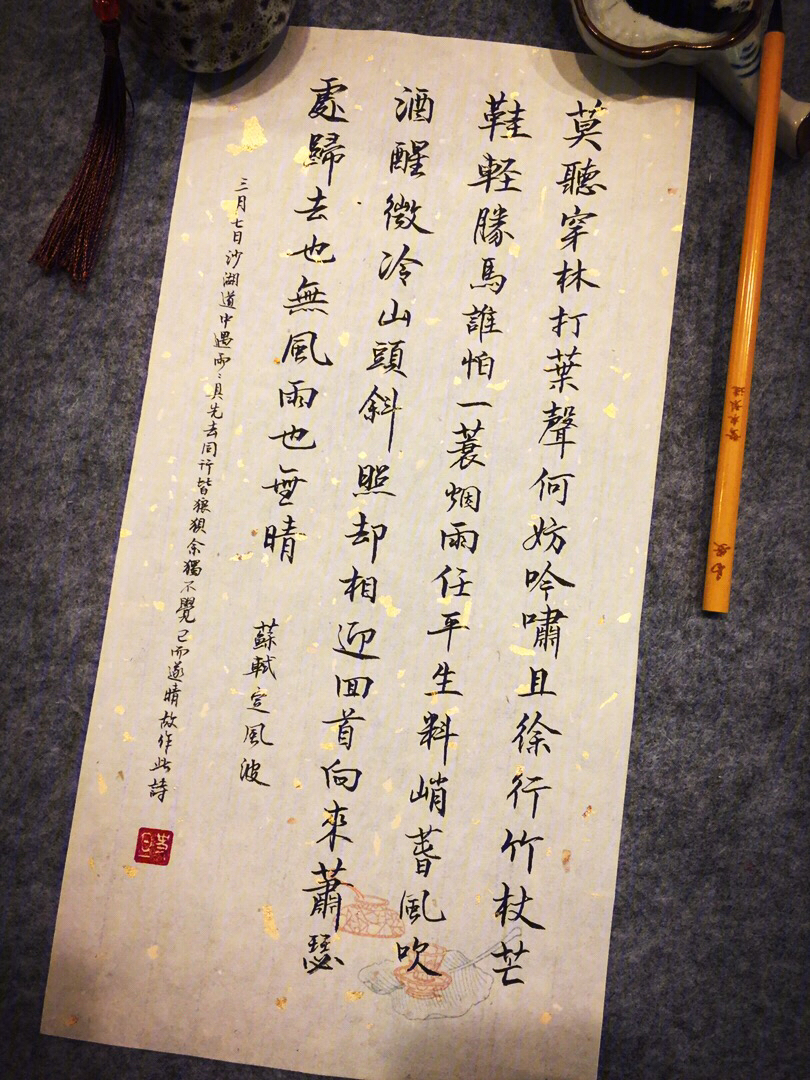 莫聽穿林打葉聲何妨吟嘯且徐行竹杖芒
鞋軽勝馬誰怕一蓑烟雨任平生料峭春風吹
酒醒微冷山頭斜照却相迎回首向來蕭瑟
處歸去也無風雨也無晴
蘇軾定風波
三月七日沙湖道中遇雨〻具先去同行皆狼狽余獨不覺已而遂晴故作此詩